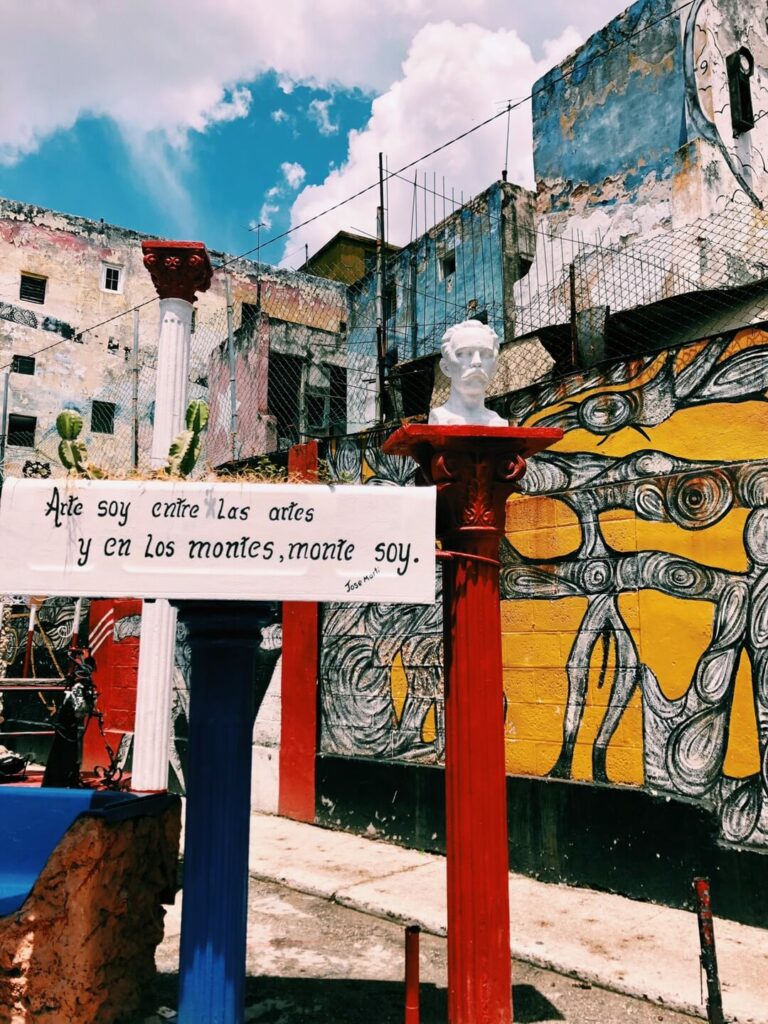 Arte soy entre las artes
y en los montes, monte soy.
Jose Martí